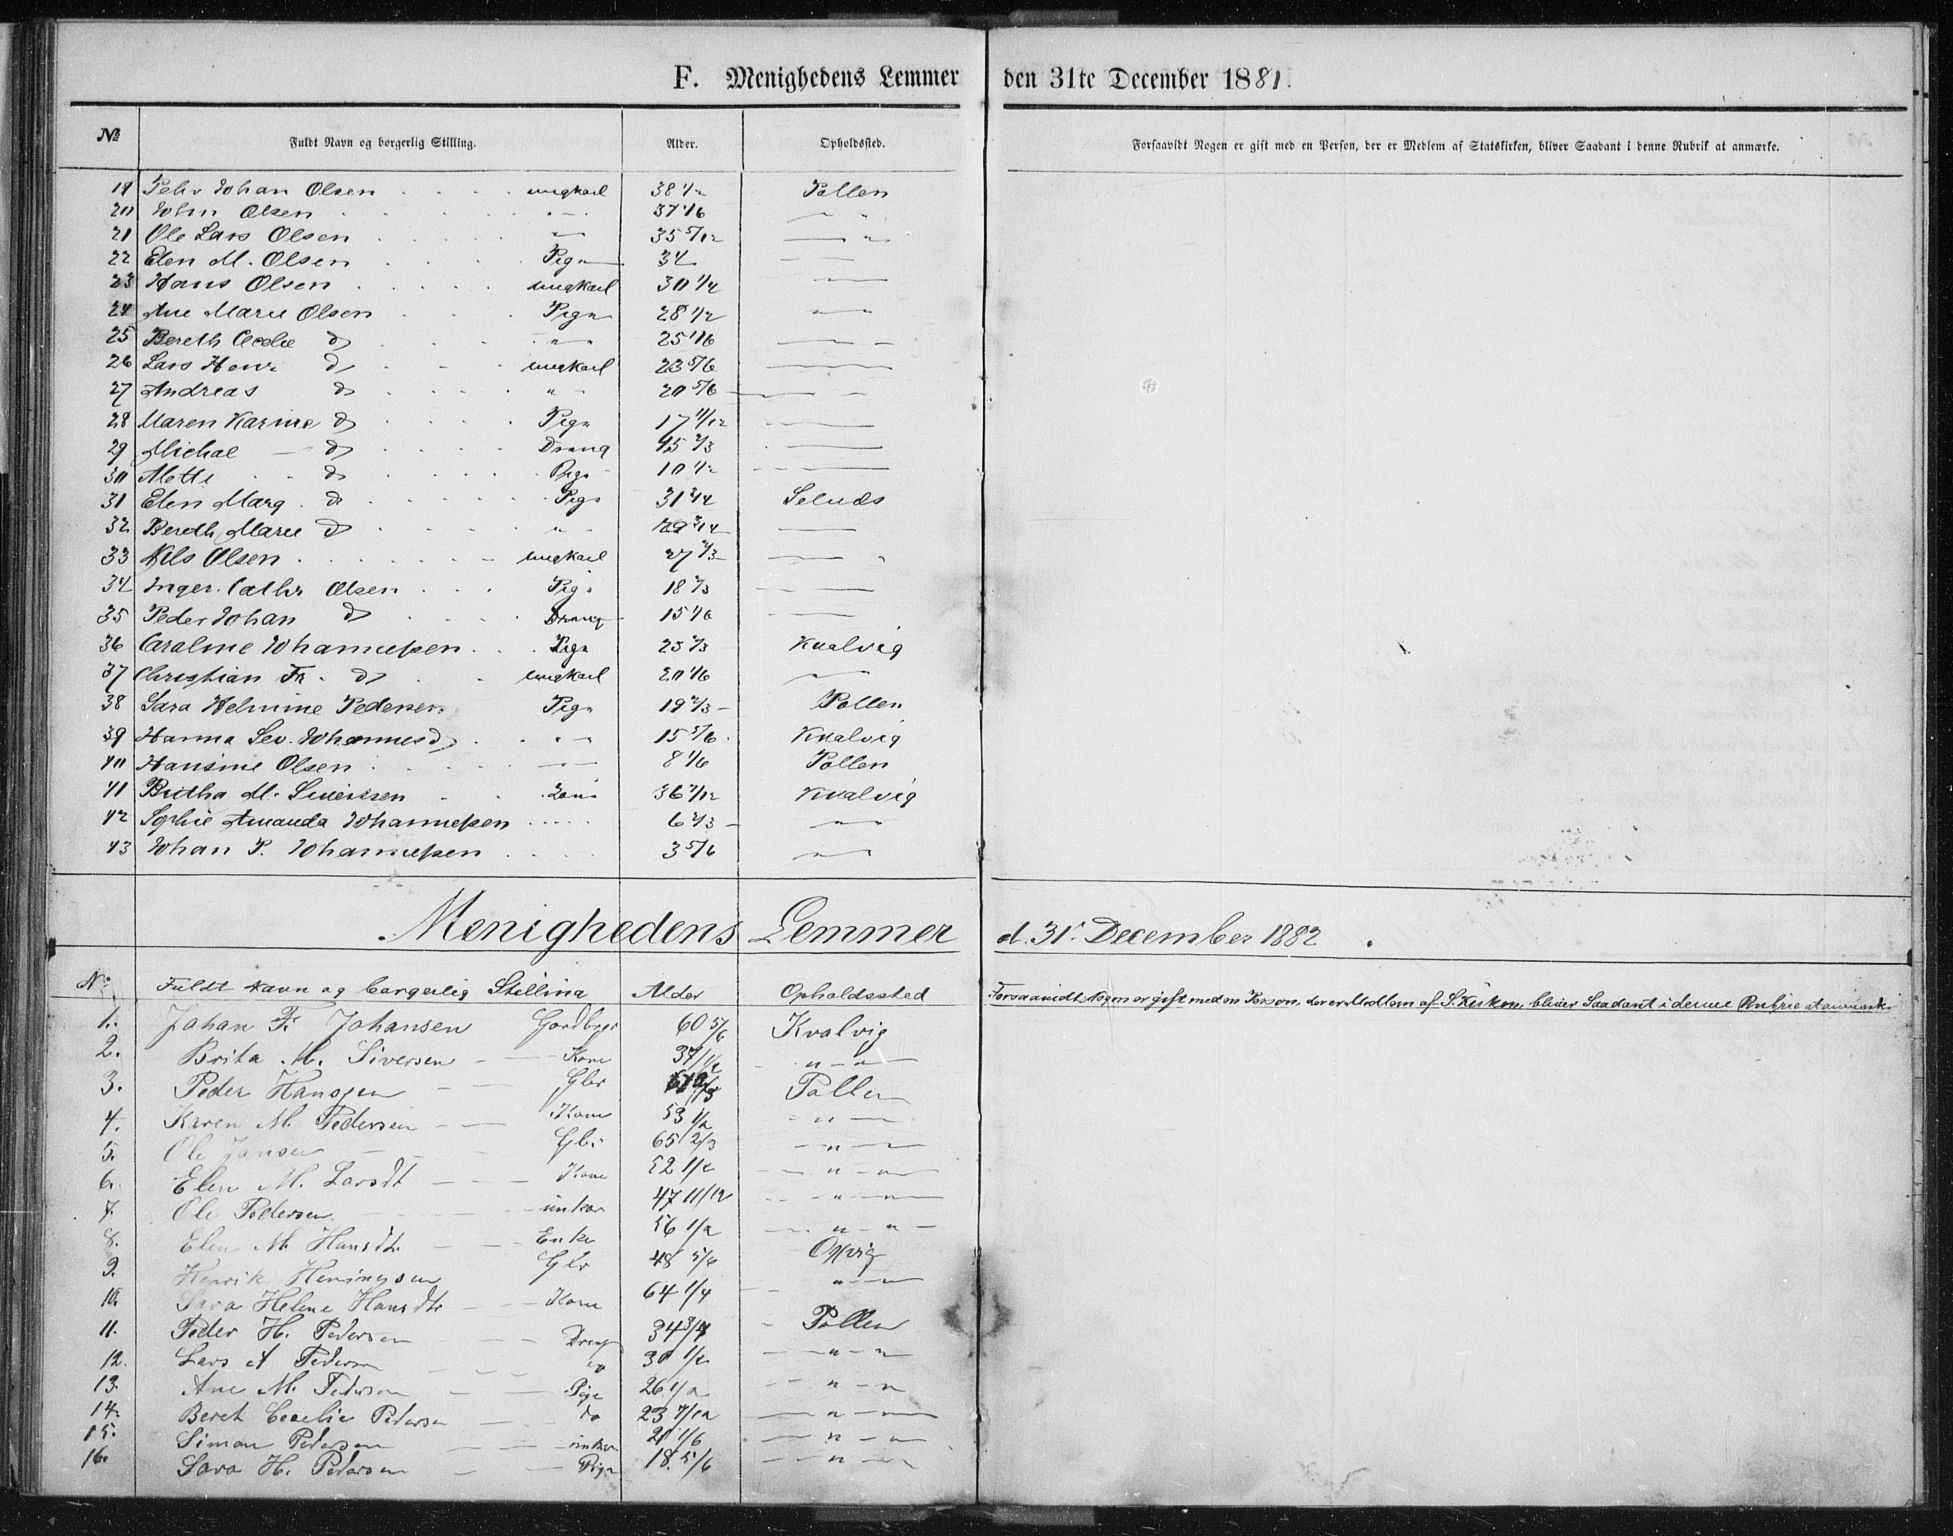 F. Menighedens Lemmer den 31te December 1881.
№ Fuldt Navn og borgerlig Stilling. Alder. Opholdssted. Forsaavidt Nogen er gift med en Person, der er Medlem af Statskirken, bliver Saadant i denne Rubrik at anmærke.
19 Johan Olsen ungkarl 38 1/2 Pollen
20 John Olsen " 37 1/6 " "
21 Ole Lars Olsen " 35 5/12 "
22 Elen M. Olsen Pige 34
23 Hans Olsen ungkarl 30 1/4
24 Ane Marie Olsen Pige 28 1/2 " "
25 Bereth Cecelie do " 25 1/6
26 Lars Henr do ungkarl 23 5/6
27 Andreas do " 20 5/6
28 Maren Karine do Pige 17 11/12
29 Michal do Dreng 15 2/3
30 Mette do Pige 10 1/2
31 Elen Marg. do Pige 31 3/4
32 Bereth Marie do " 29 3/4
33 Nils Olsen ungkarl 27 2/3 "
34 Inger. Cathr Olsen Pige 18 2/3
35 Peder Johan do Dreng 15 1/6
36 Caroline Johannessen Pige 25 2/3 Kvalvig
37 Christian Fr. do ungkarl 20 1/6 "
38 Sara Helmine Pedersen Pige 19 2/3 Pollen
39 Hanna Sev. Johannesd " 15 5/6 Kvalvig
40 Hansine Olsen 8 1/6 Pollen
41 Britha M. Siversen Kone 36 1/12 Kvalvig
42 Sophie Amanda Johannessen 6 2/3 "
43 Johan P. Johannessen 3 5/6 "
Menighedens Lemmer d. 31. December 1882.
No. Fuldt Navn og borgerlig Stilling Alder Opholdssted Forsaavidt Nogen er gift med en Person, der er Medlem af S. Kirken, bliver Saadant i denne Rubrik at anmærk.
1. Johan Fr. Johansen Gardbrgr 60 5/6 Kvalvig
2. Brita M. Siversen Kone 37 1/12 " "
3. Peder Hansen Gbr Pollen
4. Karen M. Pedersen Kone 53 1/2 "
5. Ole Jansen Gbr 65 2/3 "
6. Elen M. Larsdt Kone 52 1/2 " "
7. Ole Pedersen unkar 47 11/12 "
8. Elen M. Hansdtr Enke 56 1/2 " "
9. Henrik Heningsen Gbr 48 5/6
10. Sara Helene Hansdtr Kone 64 1/4 "
11. Peder H. Pedersen Dreng 34 3/4 Pollen
12. Lars A Pedersen do 30 1/2 " "
13. Ane M. Pedersen Pige 26 1/2 " "
14. Beret Cecelie Pedersen do 23 7/12 " "
15. Simon Pedersen unkar 21 1/6 " "
16. Sara H. Pedersen Pige 18. 5/6 "